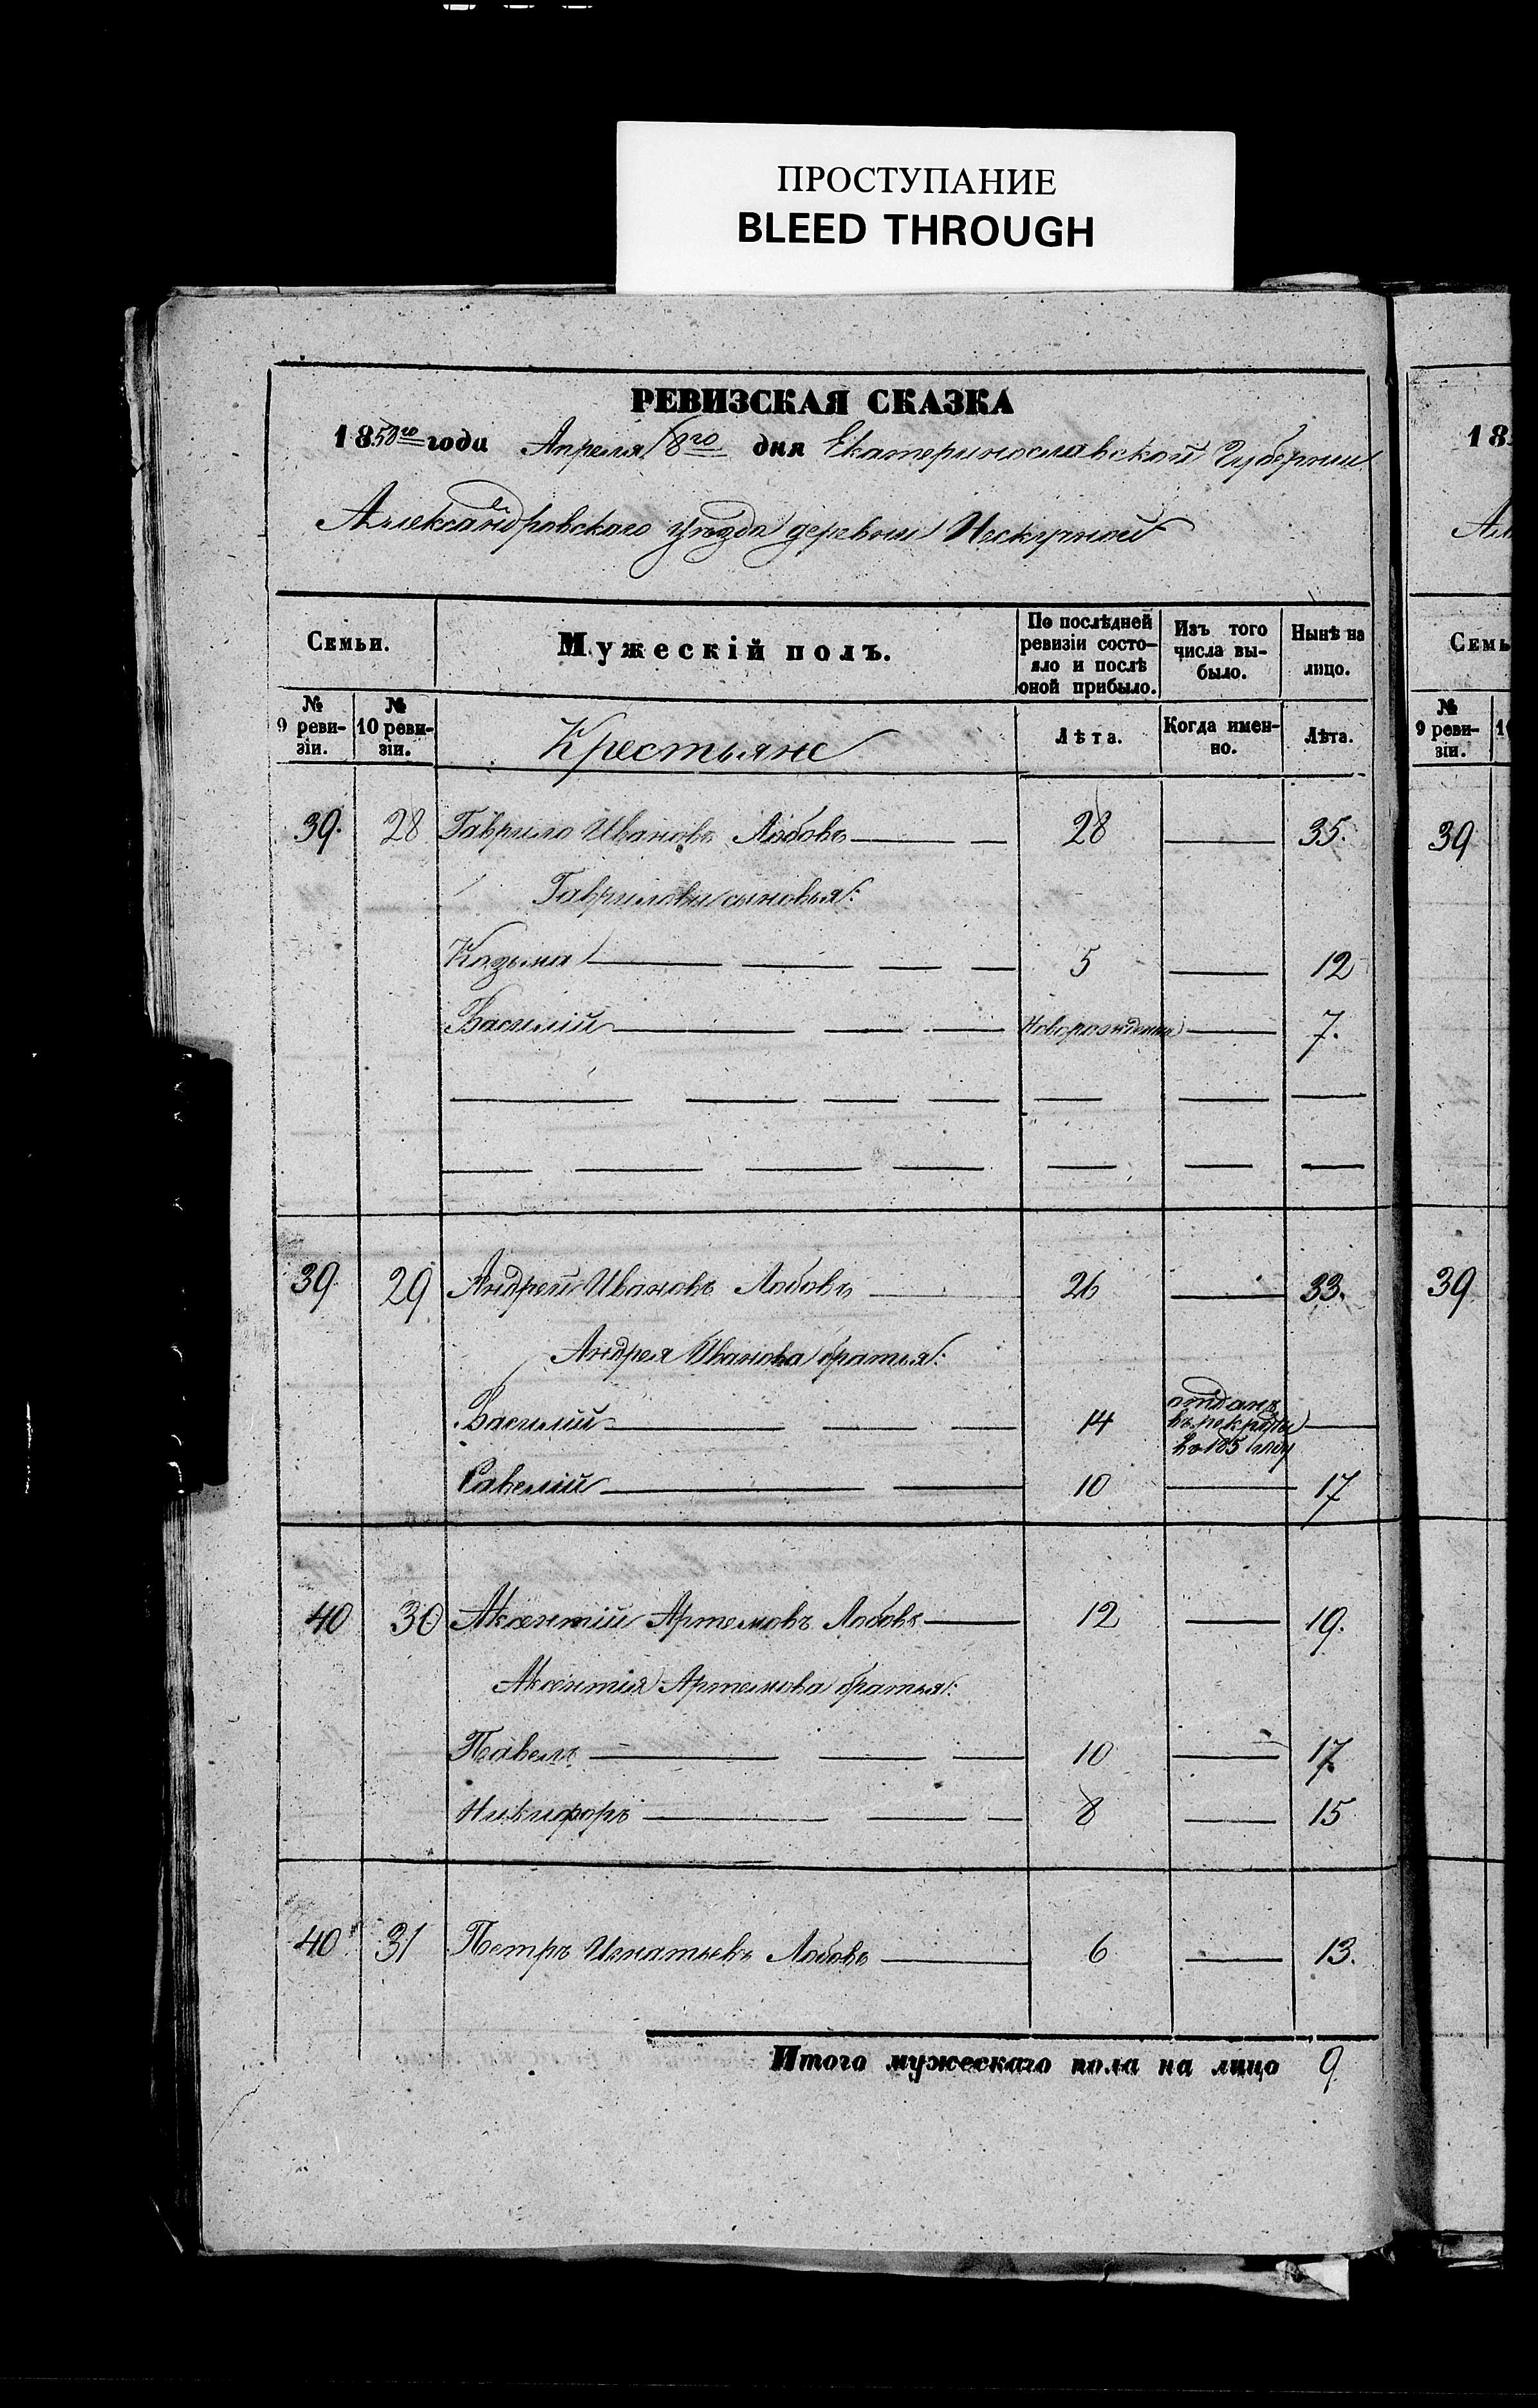 ПРОСТУПАНИЕ
BLEED THROUGH
РЕВИЗСКАЯ СКАЗКА
1858го года Апреля 8го дня Екатеринославской Губернии
Александровского уѣзда деревни Нескучной
Семьи. Мужескій полъ. По послѣдней ревизіи состояло и послѣ оной прибыло. Изъ того числа выбыло. Нынѣ на лицо.
№ 9 ревизіи. № 10 ревизіи. Крестьяне Лѣта. Когда именно. Лѣта.
39. 28 Гаврило Ивановъ Лобовъ 28 — 35.
Гавриловы сыновья:
Козьма 5 — 12
Василій Новорожденный — 7.
39. 29 Андрей Ивановъ Лобовъ 26 — 33.
Андрея Иванова братья:
Василій 14 отданъ въ рекруты въ 185 году —
Савелій 10 — 17
40 30 Аксентій Артемовъ Лобовъ 12 — 19.
Аксентія Артемова братья:
Павелъ 10 — 17
Никифоръ 8 — 15
40 31 Петръ Игнатьевъ Лобовъ 6 — 13.
Итого мужескаго пола на лицо 9
18
Ал
Семь
№ 9 ревизіи.
39
39